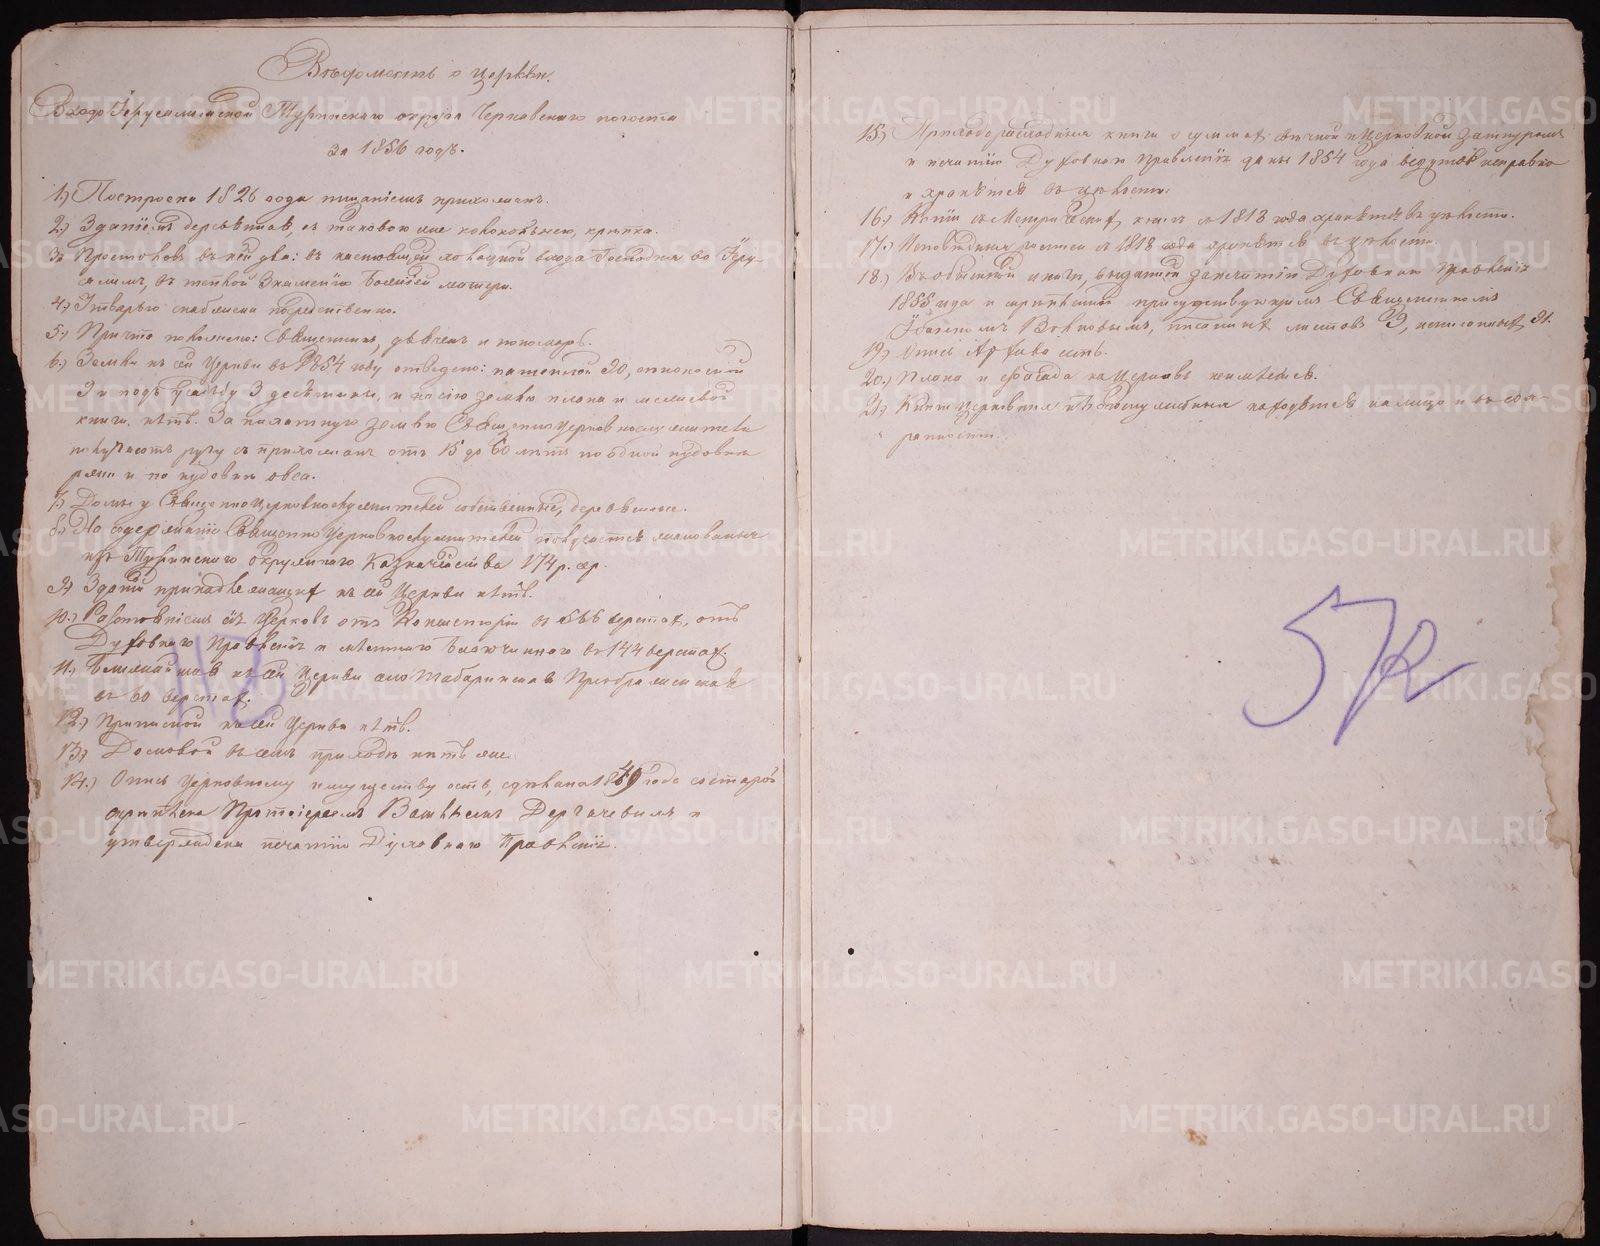 Вѣдомость о церкви.
Входо Іерусалимской Туринскаго округа Чернавскаго погоста
за 1856 годъ.
1.) Построена 1826 года тщаніемъ прихожанъ.
2.) Зданіемъ деревянная, съ таковою же колокольнею, крѣпка.
3.) Престоловъ въ ней два: въ настоящей холодной входа Господня во Іеру-
салимъ, въ теплой Знаменія Божіей матери.
4.) Утварью снабжена посредственно.
5.) Причта положено: Священникъ, дьячекъ и пономарь.
6.) Земли къ сей Церкви въ 1854 году отведено: пахатной 20, сѣнокосной
и подъ усадьбу 3 десятины, и на сію землю плана и межевой
книги нѣтъ. За пахатную землю Священноцерковнослужители
получаютъ ругу съ прихожанъ отъ 15 до 60 лѣтъ по одной пудовкѣ
ржи и по пудовкѣ овса.
7.) Домы у Священноцерковнослужителей собственные, деревянные.
8.) На содержаніе Священноцерковнослужителей получается жалованья
изъ Туринскаго Окружнаго Казначейства 174 р. сер.
9.) Зданій принадлежащих къ сей Церкви нѣтъ.
10.) Разстояніемъ сія Церковь отъ Консисторіи въ 566 верстах, отъ
Духовнаго Правленія и мѣстнаго Благочиннаго въ 144 верстах.
11.) Ближайшая къ сей Церкви село Табаринская Преображенская
въ 60 верстах.
12.) Приписной къ сей Церкви нѣтъ.
13.) Домовой въ семъ приходѣ нѣтъ же.
14.) Опись Церковному имуществу есть, сдѣлана 1849 года
скрѣплена Протоіереемъ Дергачевымъ и
утверждена печатію Духовнаго Правленія.
15.) Приходорасходныя книги о суммах свѣчной и Церковной за шнуромъ
и печатію Духовнаго Правленія даны 1854 года ведутся исправно
и хранятся въ цѣлости.
16.) Копіи съ Метрическихъ книгъ съ 1813 года хранятся въ цѣлости.
17.) Исповѣдныя росписи съ 1813 года хранятся въ цѣлости.
18.) Въ обыскной книгѣ, выданной за печатію Духовнаго Правленія
1855 года и скрѣпленной присутствующимъ Священникомъ
Волковымъ, писаных листовъ 9, неписаных 31.
19.) Опись Архива есть.
20.) Плана и фасада на Церковь неимѣется.
21.) Книги Церковныя къ Богослужебныя находятся на лицо и въ сох-
ранности.
57
METRIKI.GASO-URAL.RU